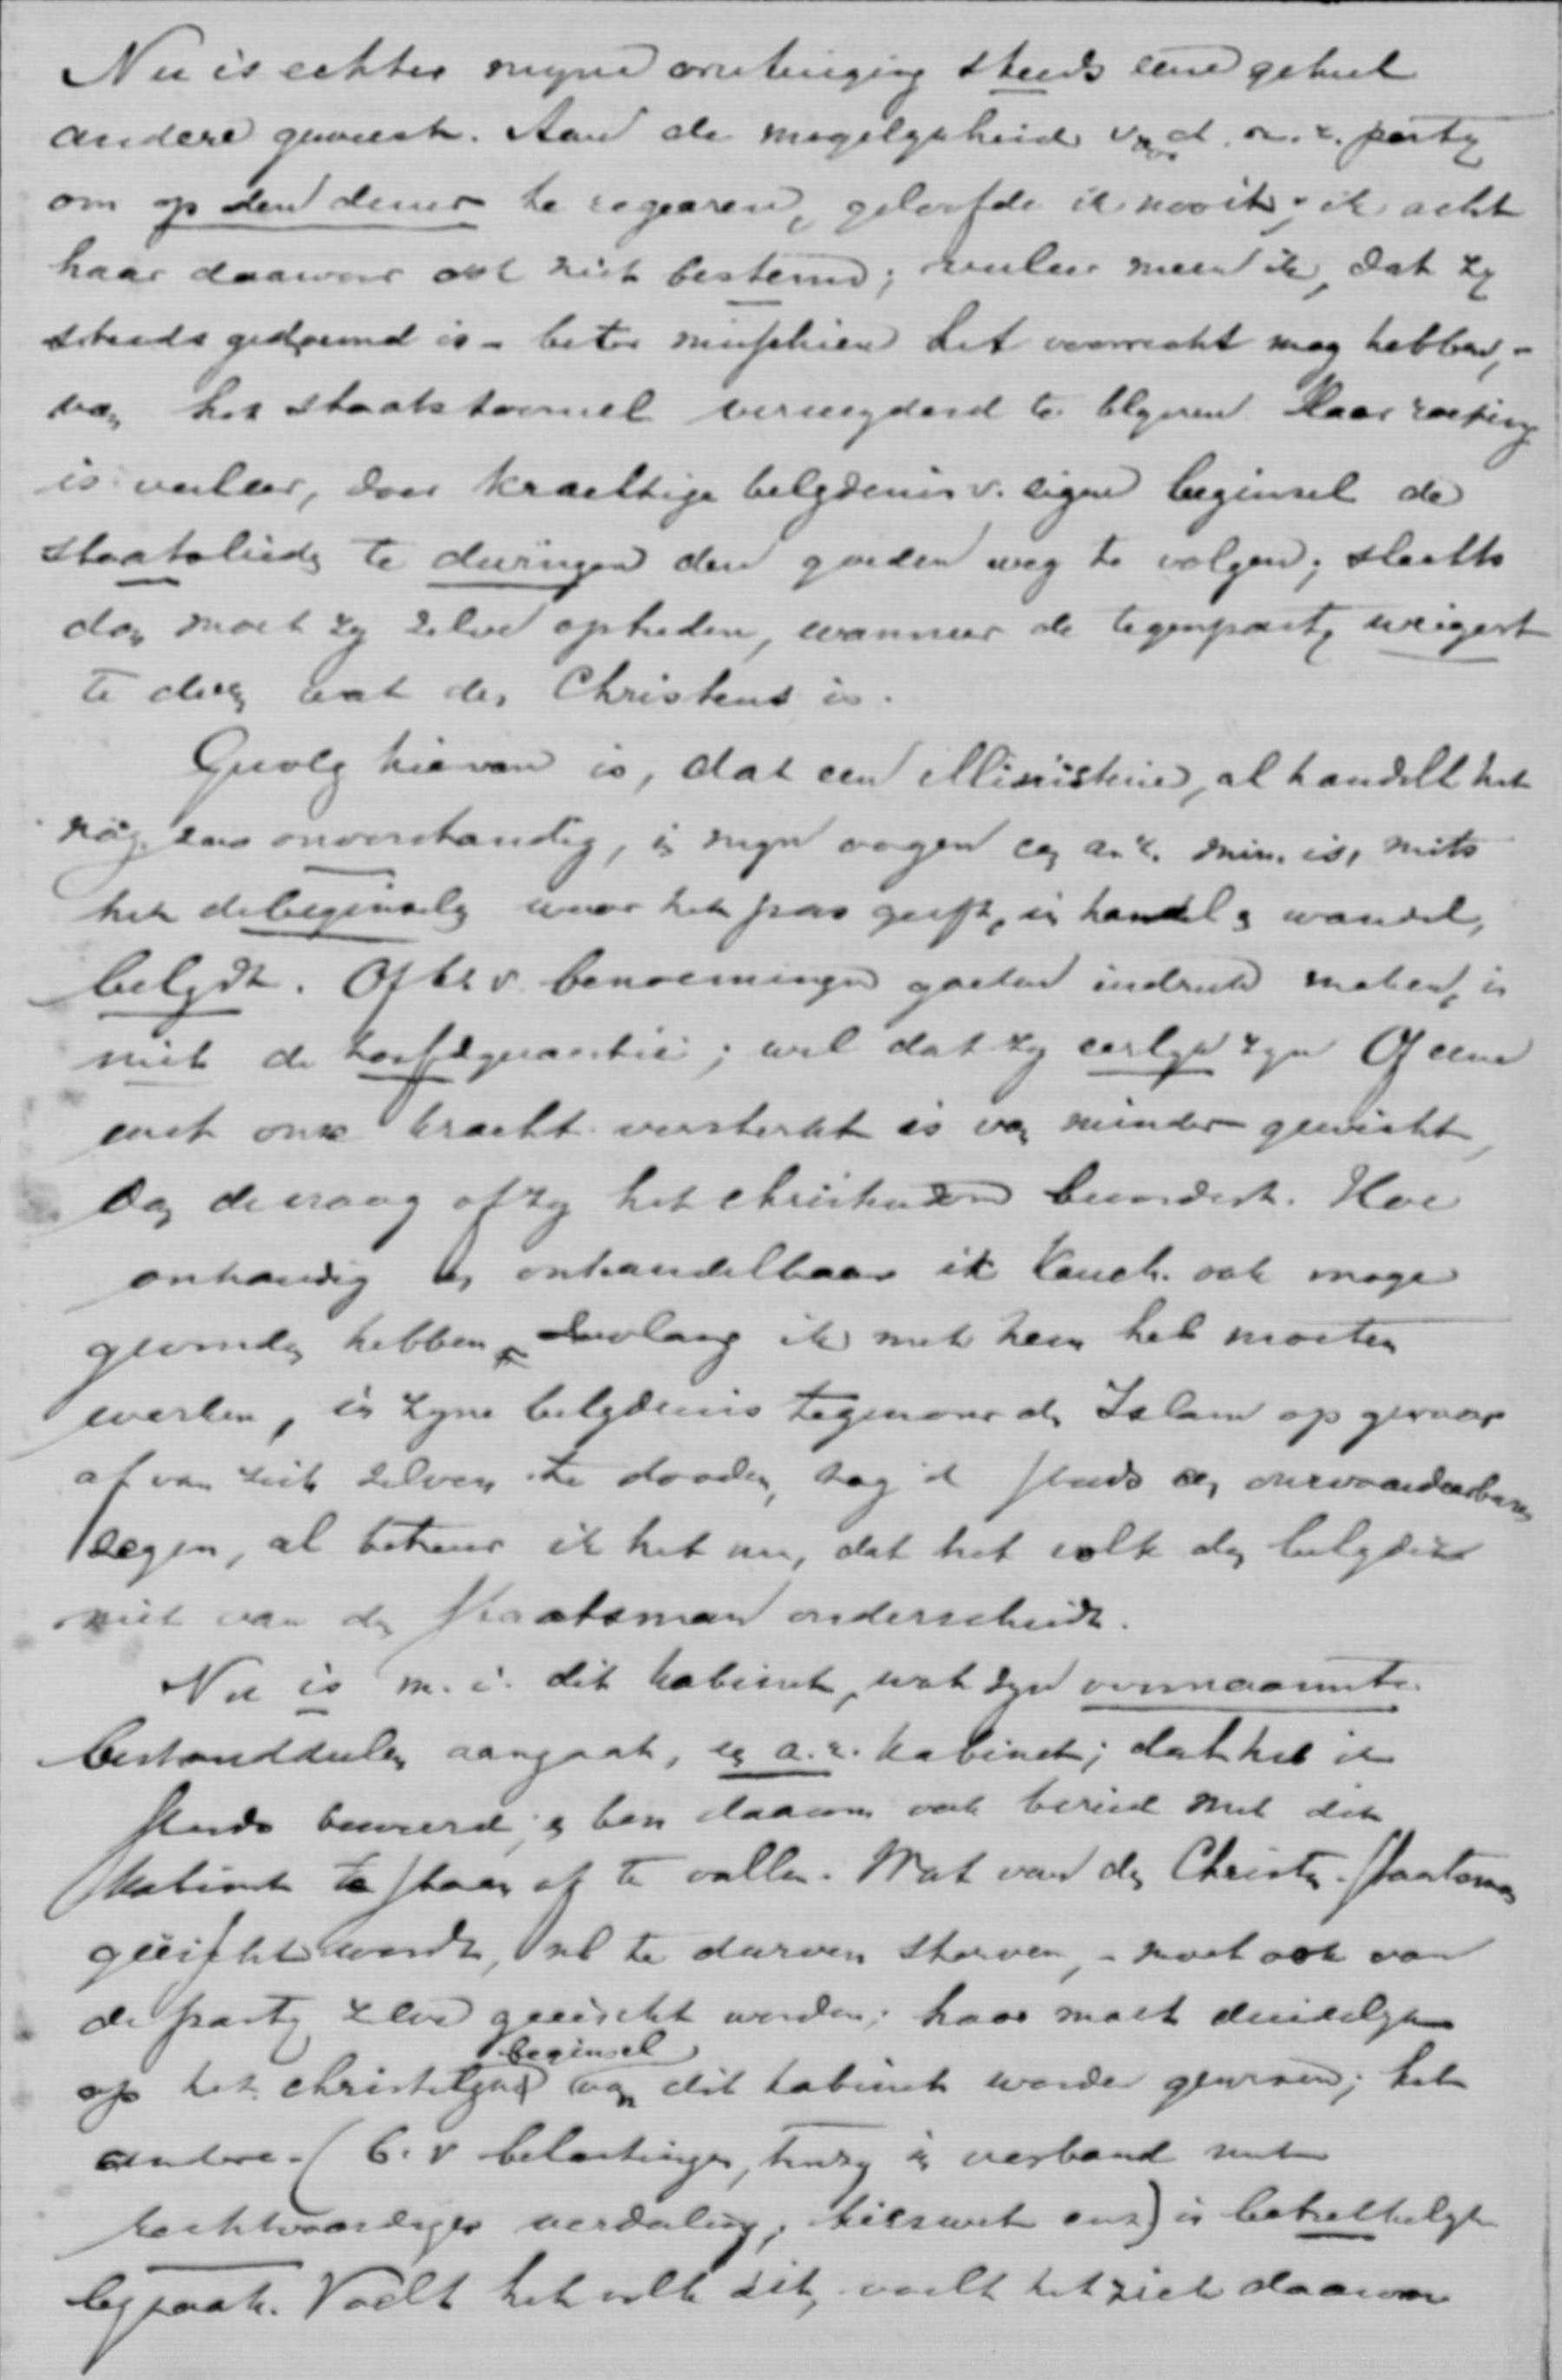 Nu is echter myne overtuiging steeds eene geheel
andere geweest. Aan de mogelykheid v. d. a. r. party
om op den duur te regeeren, geloofde ik nooit; ik acht
haar daarvoor ook niet bestemd; veeleer meen ik, dat zy
steeds gedoemd is - beter misschien het voorrecht mag hebben, -
van het staatstooneel verwyderd te blyven. Haar roeping
is veeleer, door krachtige belydenis v. eigen beginsel de
staatslieden te dwingen den goeden weg te volgen; slechts
dan moet zy zelve optreden, wanneer de tegenparty weigert
te doen wat des Christens is.
Gevolg hiervan is, dat een Ministerie, al handelt het
nög zoo onverstandig, in myn oogen een a. r. min. is, mits
het de beginselen waar het pas geeft, in handel en wandel,
belydt. Of hr v. benoemingen goeden indruk maken, is
niet de hoofdquaestie; wel dat zy eerlyk zyn. Of eene
wet onze kracht versterkt is van minder gewicht,
dan de vraag of zy het christendom bevordert. Hoe
onhandig en onhandelbaar ik Keuch. ook moge
gevonden hebben, zoolang ik met hem heb moeten
werken, in zyne belydenis tegenover den Islam op gevaar
af van zich zelven te dooden, zag ik steeds een onwaardeerbaren
zegen, al betreur ik het nu, dat het volk den belyder
niet van den staatsman onderscheidt.
Nu is m. i. dit kabinet, wat zyn voornaamste
bestanddeelen aangaat, een a. r. kabinet; dat heb ik
steeds beweerd, en ben daarom ook bereid met dit
kabinet te staan of te vallen. Wat van den Christen-staatsman
geëischt wordt, nl te durven sterven, - moet ook van
de party zelve geeischt worden; haar moet duidelyk
beginsel
op het christelyke van dit kabinet worden gewezen; het
andere - (b. v belastingen, tenzy in verband met
rechtvaardiger verdeeling, kieswet enz) is betrekkelyk
byzaak. Voelt het volk dit, voelt het zich daarom